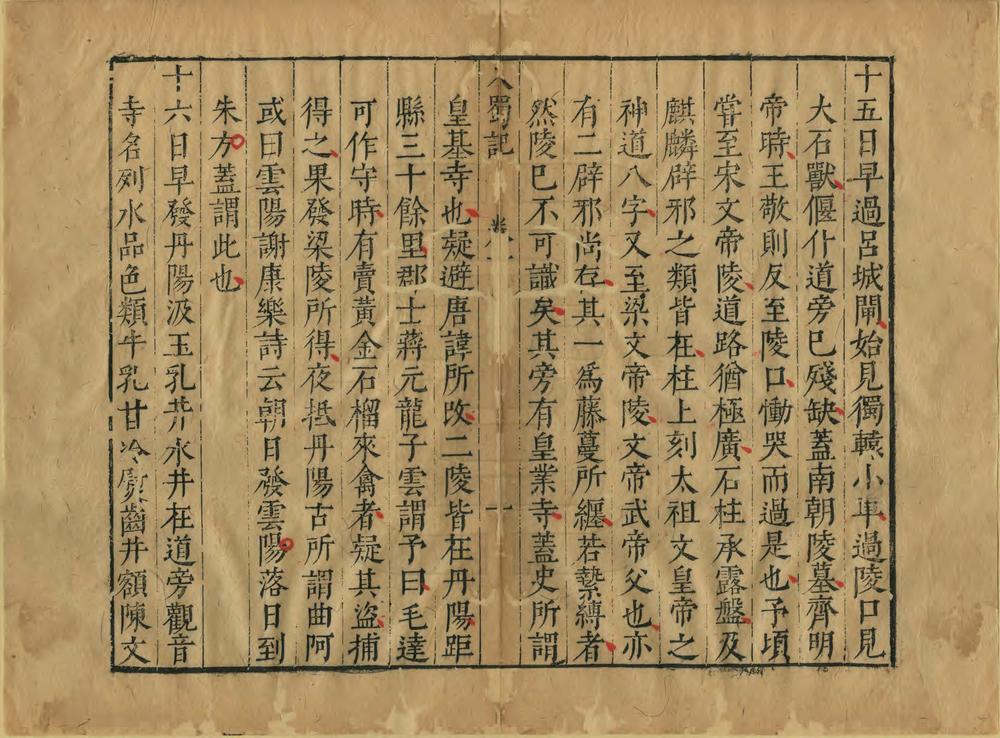 十五日早過呂城閘始見獨轅小車過陵口見
大石獸偃仆道旁巳殘缺蓋南朝陵墓齊明
帝時王敬則反至陵口慟哭而過是也予頃
嘗至宋文帝陵道路猶極廣石柱承露盤及
麒麟辟邪之類皆在柱上刻太祖文皇帝之
神道八字又至梁文帝陵文帝武帝父也亦
有二辟邪尚存其一爲藤蔓所纒若縶縛者
然陵巳不可識矣其旁有皇業寺蓋史所謂
入蜀記 卷一 一
皇基寺也疑避唐諱所改二陵皆在丹陽距
縣三十餘里郡士蔣元龍子雲謂予曰毛達
可作守時有賣黃金石榴來禽者疑其盜捕
得之果發梁陵所得夜抵丹陽古所謂曲阿
或曰雲陽謝康樂詩云朝日發雲陽落日到
朱方蓋謂此也
十六日早發丹陽汲玉乳井水井在道旁觀音
寺名列水品色類牛乳甘冷熨齒井額陳文